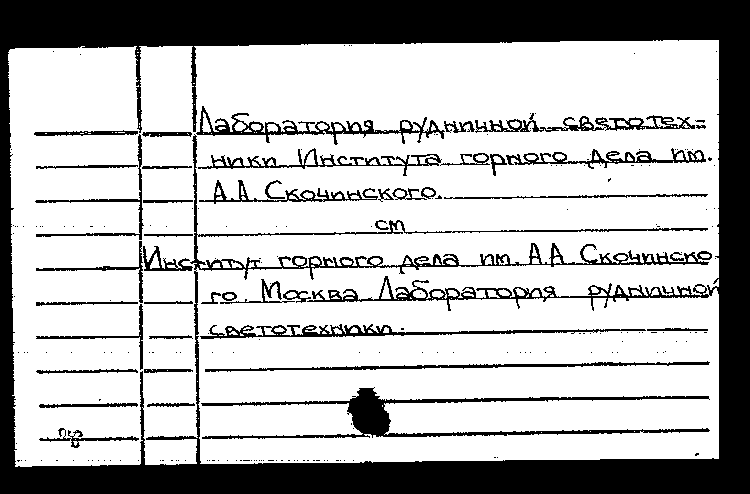 Лаборатория рудничной светотех-
ники Института горного дела им.
А.А. Скочинского.
см
Институт горного дела им. А.А. Скочинско-
го. Москва Лаборатория рудничной
светотехники.